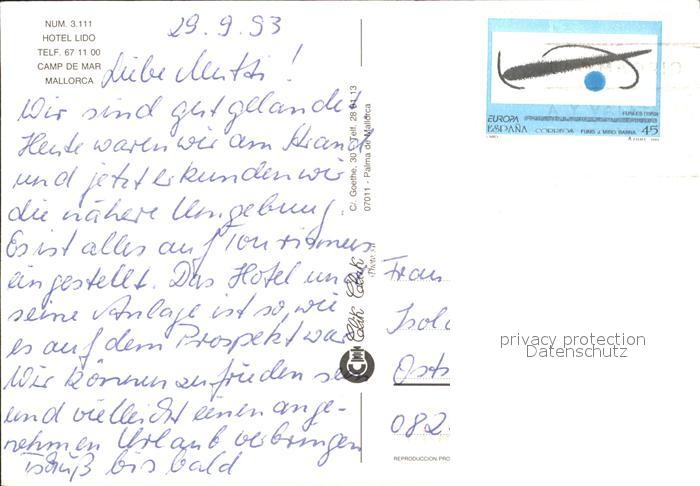 NUM. 3.111
HOTEL LIDO
TELF. 67 11 00
CAMP DE MAR
MALLORCA
29. 9. 93
Liebe Mutti!
Wir sind gut gelandet
Heute waren wir am Strand
und jetzt erkunden wir
die nähere Umgebung.
Es ist alles auf Tourismus
eingestellt. Das Hotel und
seine Anlage ist so, wie
es auf dem Prospekt war
Wir können zufrieden sein
und vielleicht einen ange-
nehmen Urlaub verbringen
Tschüß bis bald
C/. Goethe, 30 - Telf. 28 94 13
07011 - Palma de Mallorca
Clik Clak
EUROPA
ESPAÑA
CORREOS
FUSEES (1959)
FUND. J. MIRO. PALMA
45
Frau
Isol
Osts
082
privacy protection
Datenschutz
REPRODUCCION PRO